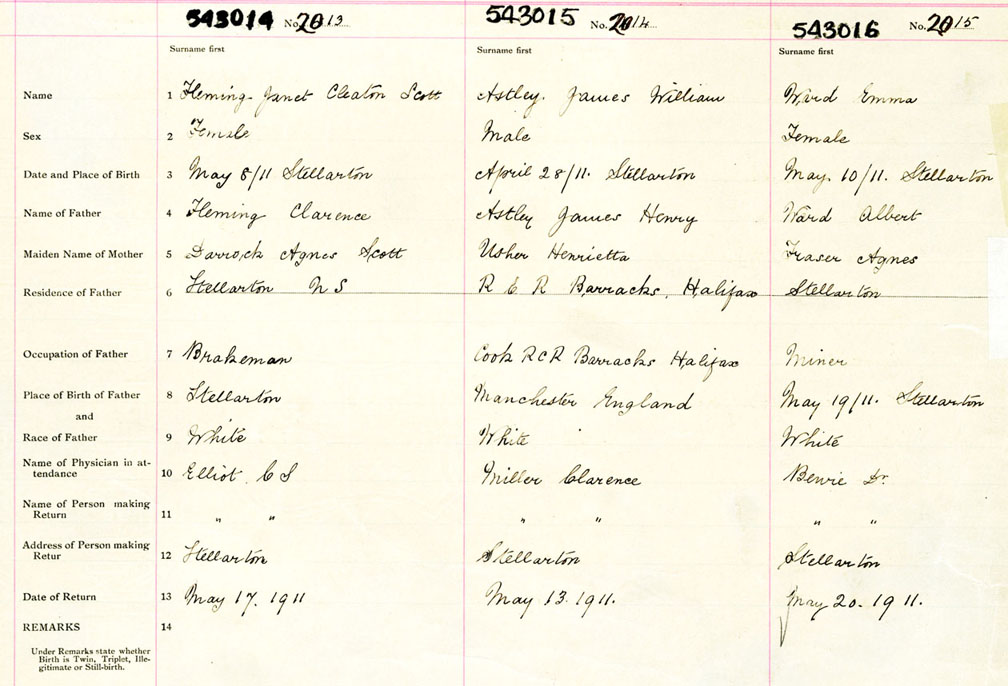 543014 No. 2013 543015 No. 2014 543016 No. 2015
Surname first Surname first Surname first
Name 1 Fleming Janet Cleaton Scott Astley. James William Ward Emma
Sex 2 Female Male Female
Date and Place of Birth 3 May 8/11 Stellarton April 28/11. Stellarton May. 10/11. Stellarton
Name of Father 4 Fleming Clarence Astley James Henry Ward Albert
Maiden Name of Mother 5 Darrock Agnes Scott Usher Henrietta Fraser Agnes
Residence of Father 6 Stellarton N S R C R Barracks. Halifax Stellarton
Occupation of Father 7 Brakeman Cook R C R Barracks Halifax Miner
Place of Birth of Father 8 Stellarton Manchester England May 19/11. Stellarton
and
Race of Father 9 White White White
Name of Physician in at-
tendance 10 Elliot. C S Miller Clarence Dr.
Name of Person making
Return 11 " " " " " "
Address of Person making
Retur 12 Stellarton Stellarton Stellarton
Date of Return 13 May 17. 1911 May 13. 1911. May 20. 1911.
REMARKS 14
Under Remarks state whether
Birth is Twin, Triplet, Ille-
gitimate or Still-birth.